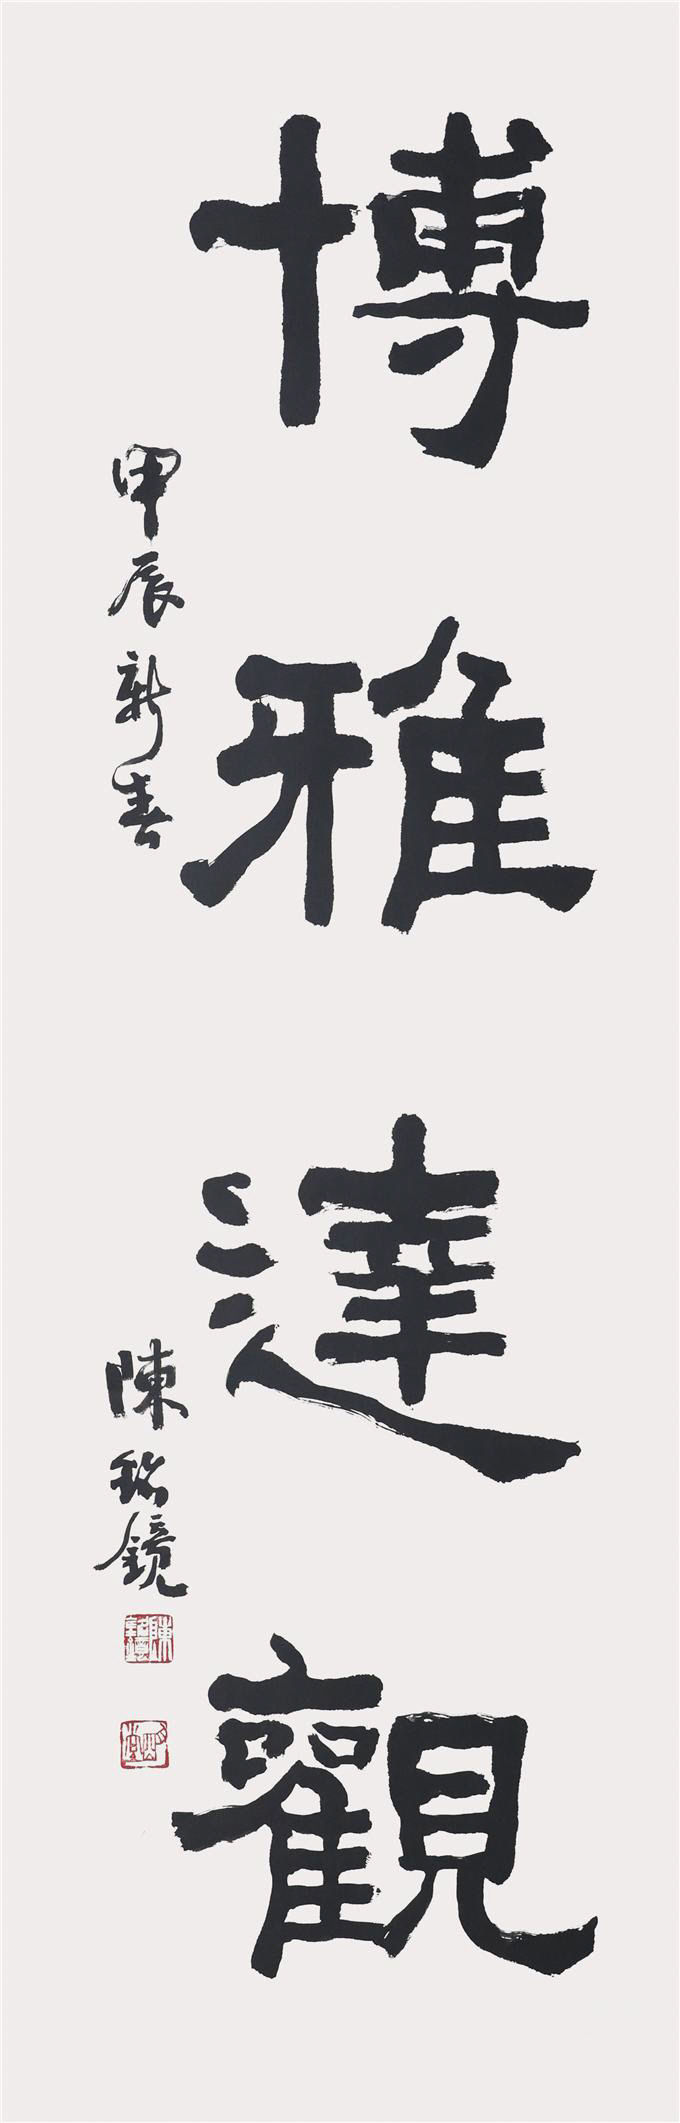 博雅達觀
甲辰新春
陳銘鏡